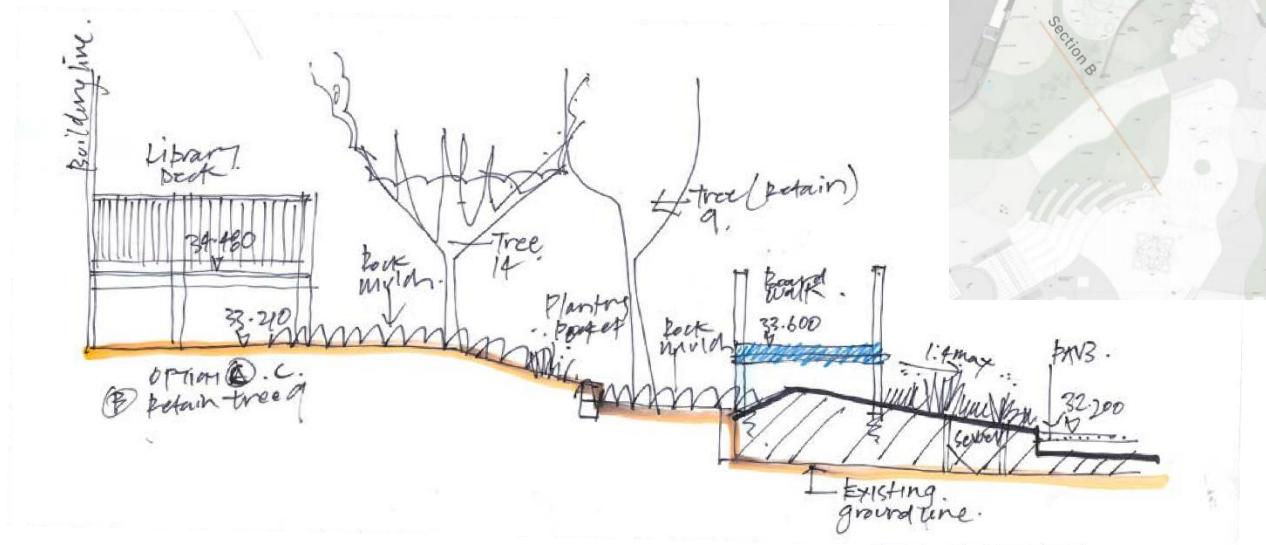 Building line.
Library
Deck
34.480
33.210
Rock
mulch.
Tree
14
Planting
pocket
Tree (Retain)
9.
Rock
mulch
Board
walk.
33.600
1:4 max
PAV3.
32.200
Sewer
OPTION C.
B Retain tree 9
Existing.
ground line.
Section B